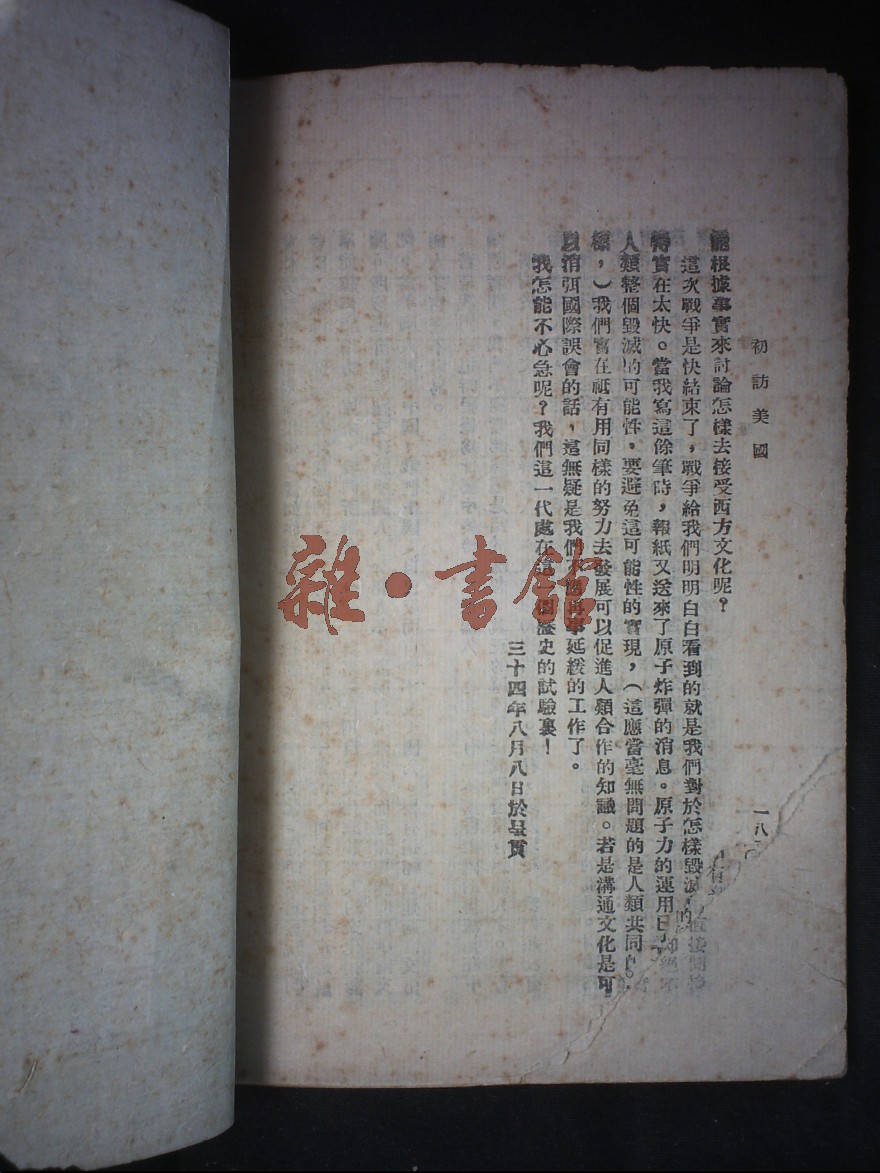 初訪美國
一八
能根據事實來討論怎樣去接受西方文化呢？
這次戰爭是快結束了，戰爭給我們明明白白看到的就是我們對於怎樣毀滅
得實在太快。當我寫這餘筆時，報紙又送來了原子炸彈的消息。原子力的運用已
人類整個毀滅的可能性，要避免這可能性的實現，（這應當毫無問題的是人類共同
標，）我們實在祇有用同樣的努力去發展可以促進人類合作的知識。若是溝通文化是可
以消弭國際誤會的話，這無疑是我們不再事延緩的工作了。
我怎能不心急呢？我們這一代處在這個歷史的試驗裏！
三十四年八月八日於呈貢
雜·書館